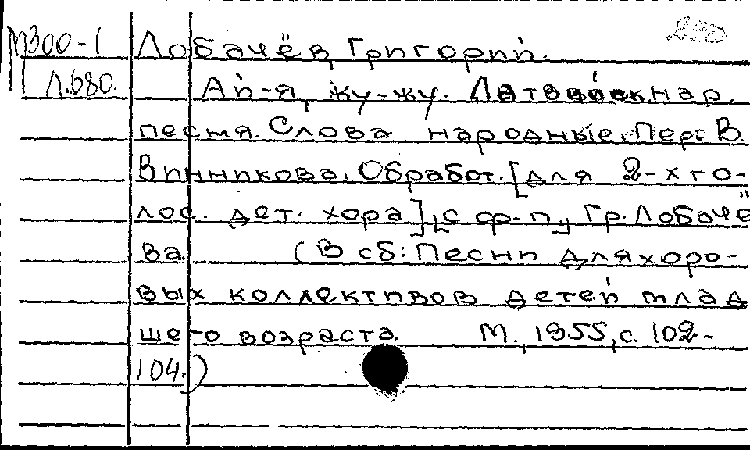 М300-1 Лобачёв, Григорий.
Л.680. Ай-я, жу-жу. Латвийск. нар.
песня. Слова народные. Пер. В.
Винникова. Обработ. [для 2-х го-
лос. дет. хора], с ф-п., Гр. Лобачё
ва. (В сб: Песни для хоро-
вых коллективов детей млад
шего возраста. М., 1955, с. 102-
104.)